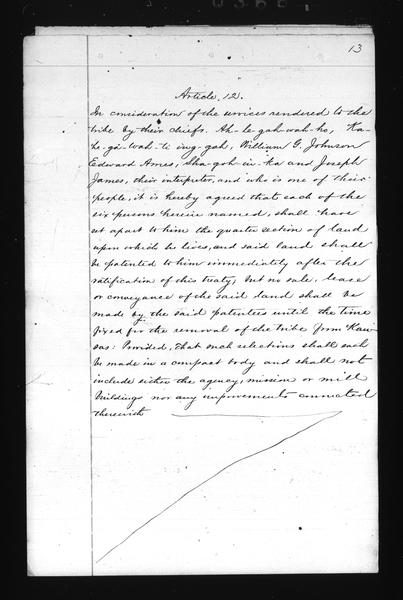 13
Article, 12.
In consideration of the services rendered to the
tribe by their chiefs. Ah-le-gah-wah-ho, Ka-
he-ga-wah-ti-ing-gah, William G. Johnson
Edward Ames, Sha-goh-in-ka and Joseph
James, their interpreter, and who is one of their
people, it is hereby agreed that each of the
six persons herein named, shall have
set apart to him the quarter section of land
upon which he lives, and said land shall
be patented to him immediately after the
ratification of this treaty; but no sale, lease
or conveyance of the said land shall be
made by the said patentees until the time
fixed for the removal of the tribe from Kan-
sas: Provided, That such selections shall each
be made in a compact body and shall not
include either the agency, mission or mill
buildings nor any improvements connected
therewith